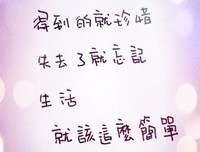 得到的就珍惜
失去了就忘記
生活
就該這麼簡單